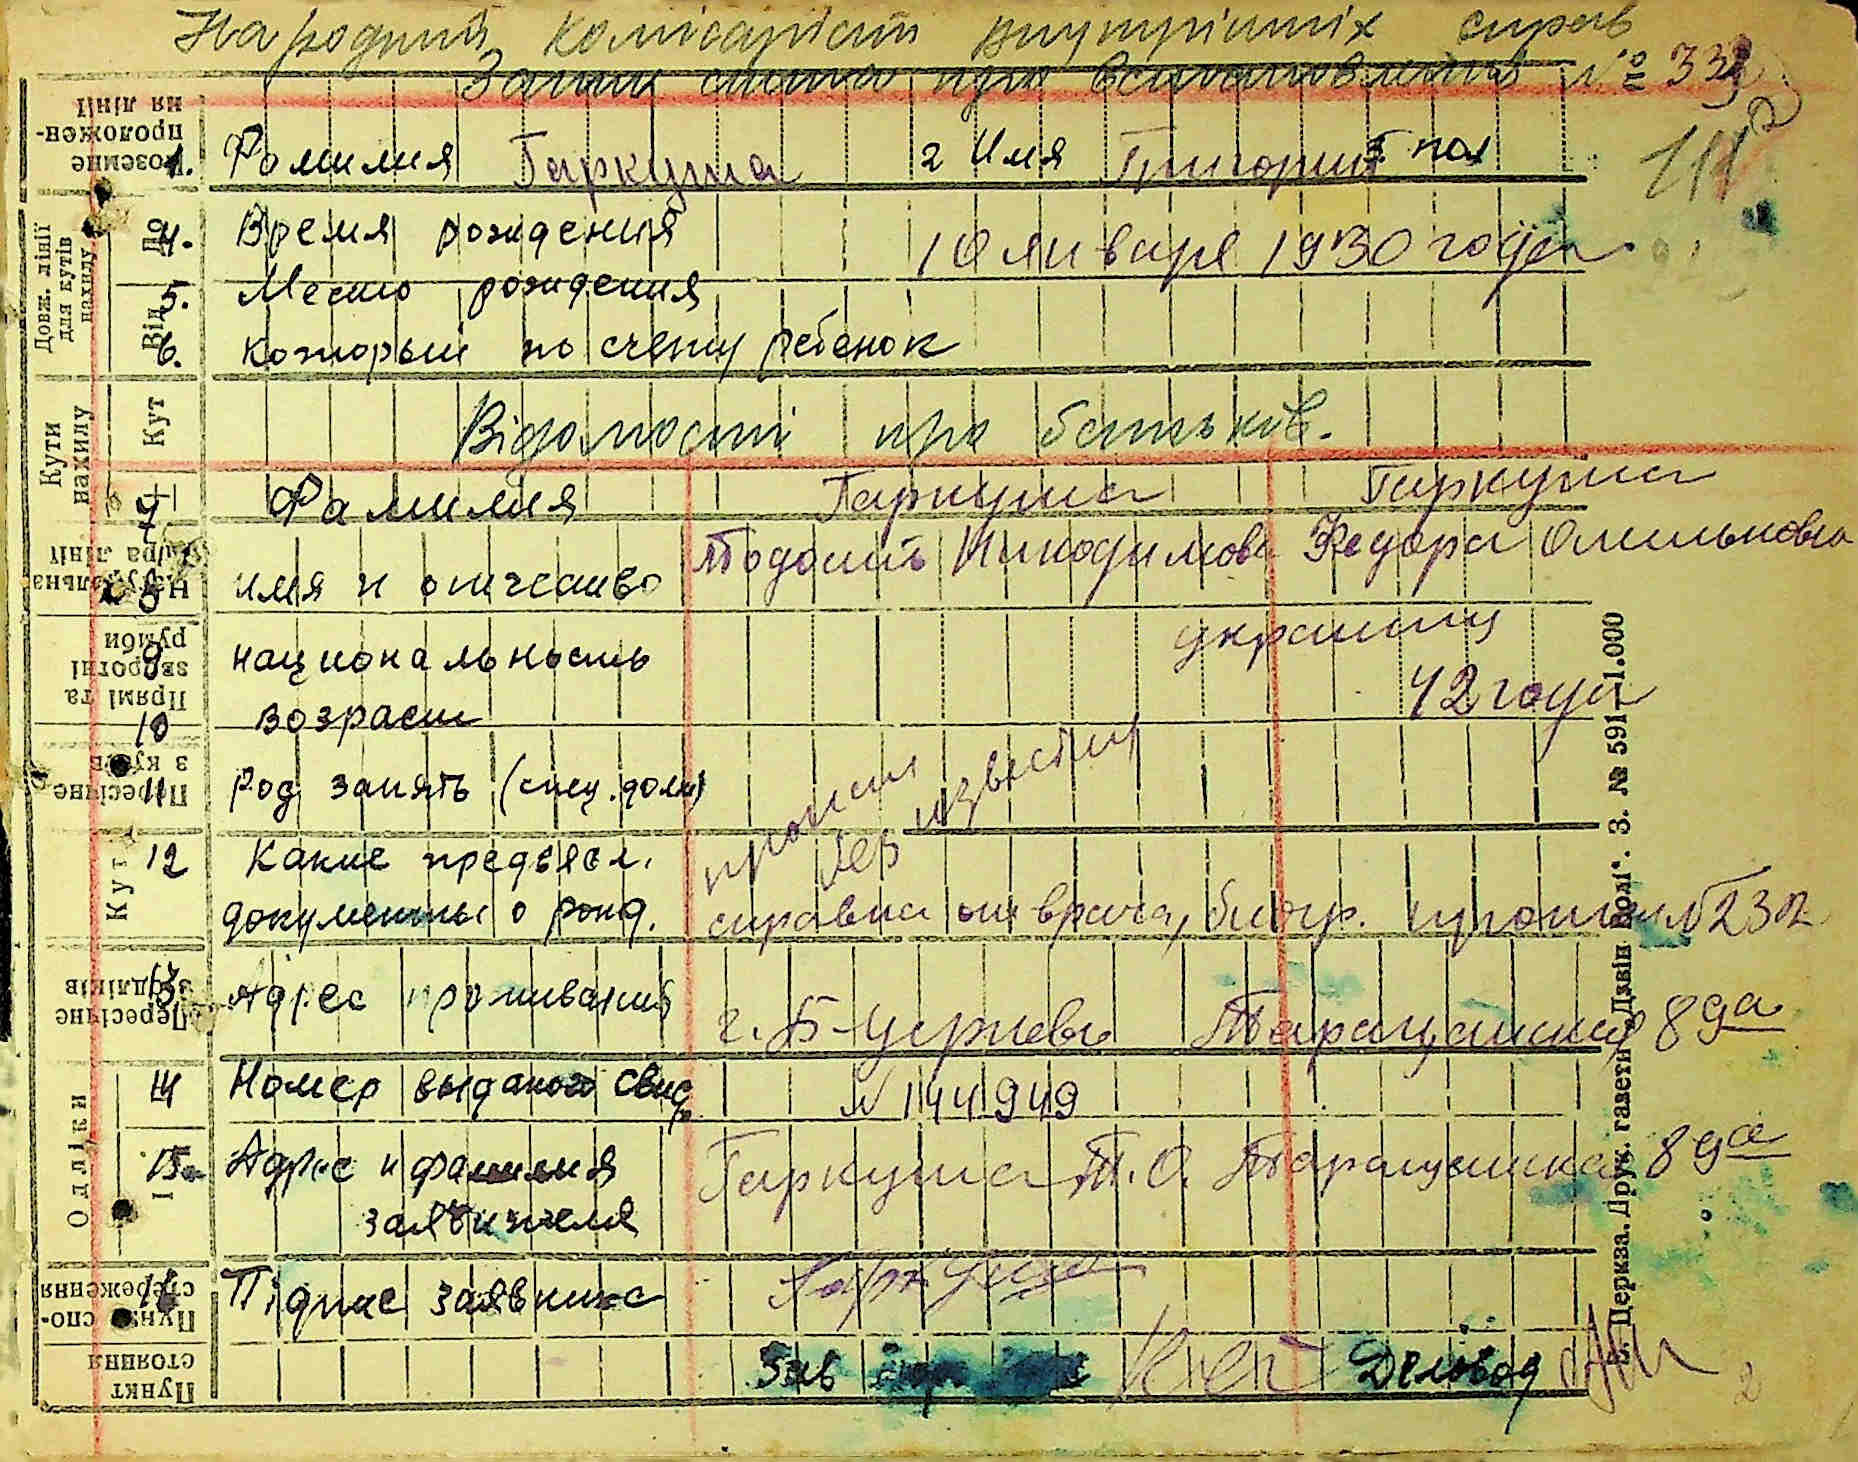 Народний Комісаріат внутрішніх справ
Запис акта про встановлення № 333
1. Фамилия Гаркуша 2 Имя Григорий 3. пол
4. Время рождения 10 января 1930 года
5. Место рождения
6. который по счету ребенок
Відомості про батьків.
7 Фамилия Гаркуша Гаркуша
8 имя и отчество Тодосить Никодимова Федора Омельковна
9 национальность украинц
10 возраст 42 года
11 Род занять (спец. долж)
пропал без известия
12 Какие предъявл.
документы о рожд. справка от врача, биогр. №232
13 Адрес проживания г. Б-Церковь Таращанская 8 да
14 Номер выданого свид № 144949
15. Адрес и фамилия Гаркуша Т.О. Таращанская 8 да
заявителя
16 Підпис заявника Гаркуша
Зав Деловод
2
Довж. лінії для кутів нахилу
Від До
Кути нахилу
Кут
Натуральна міра лінії
Прямі та зворотні румби
Кут
Одліки
I
Пункт спостереження
Пункт стояння
Б. Церква. Друк. газети „Дзвін Волі“. З. № 591—1.000